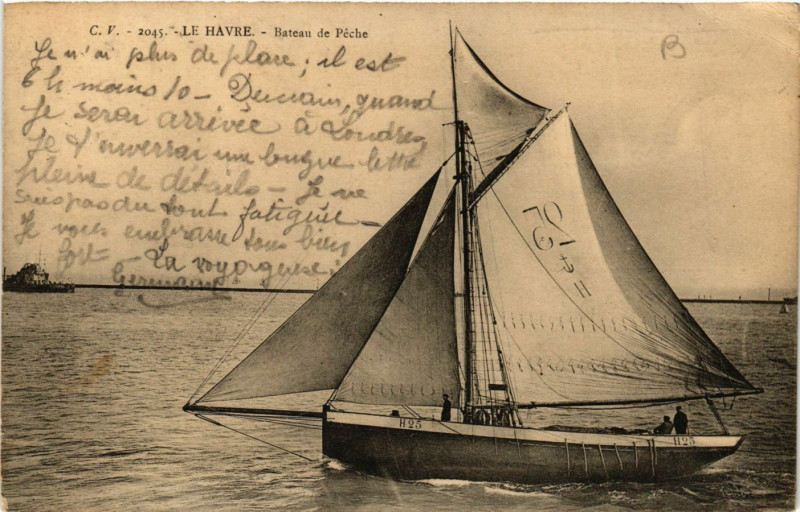 C. V. - 2045. - LE HAVRE. - Bateau de Pêche
B
Je n'ai plus de place ; il est
6 h moins 10 - Demain, quand
je serai arrivée à Londres,
je t'enverrai une longue lettre
pleine de détails - Je ne
suis pas du tout fatiguée -
Je vous embrasse tous bien
fort - La voyageuse
Germaine
H 25
H25
H25